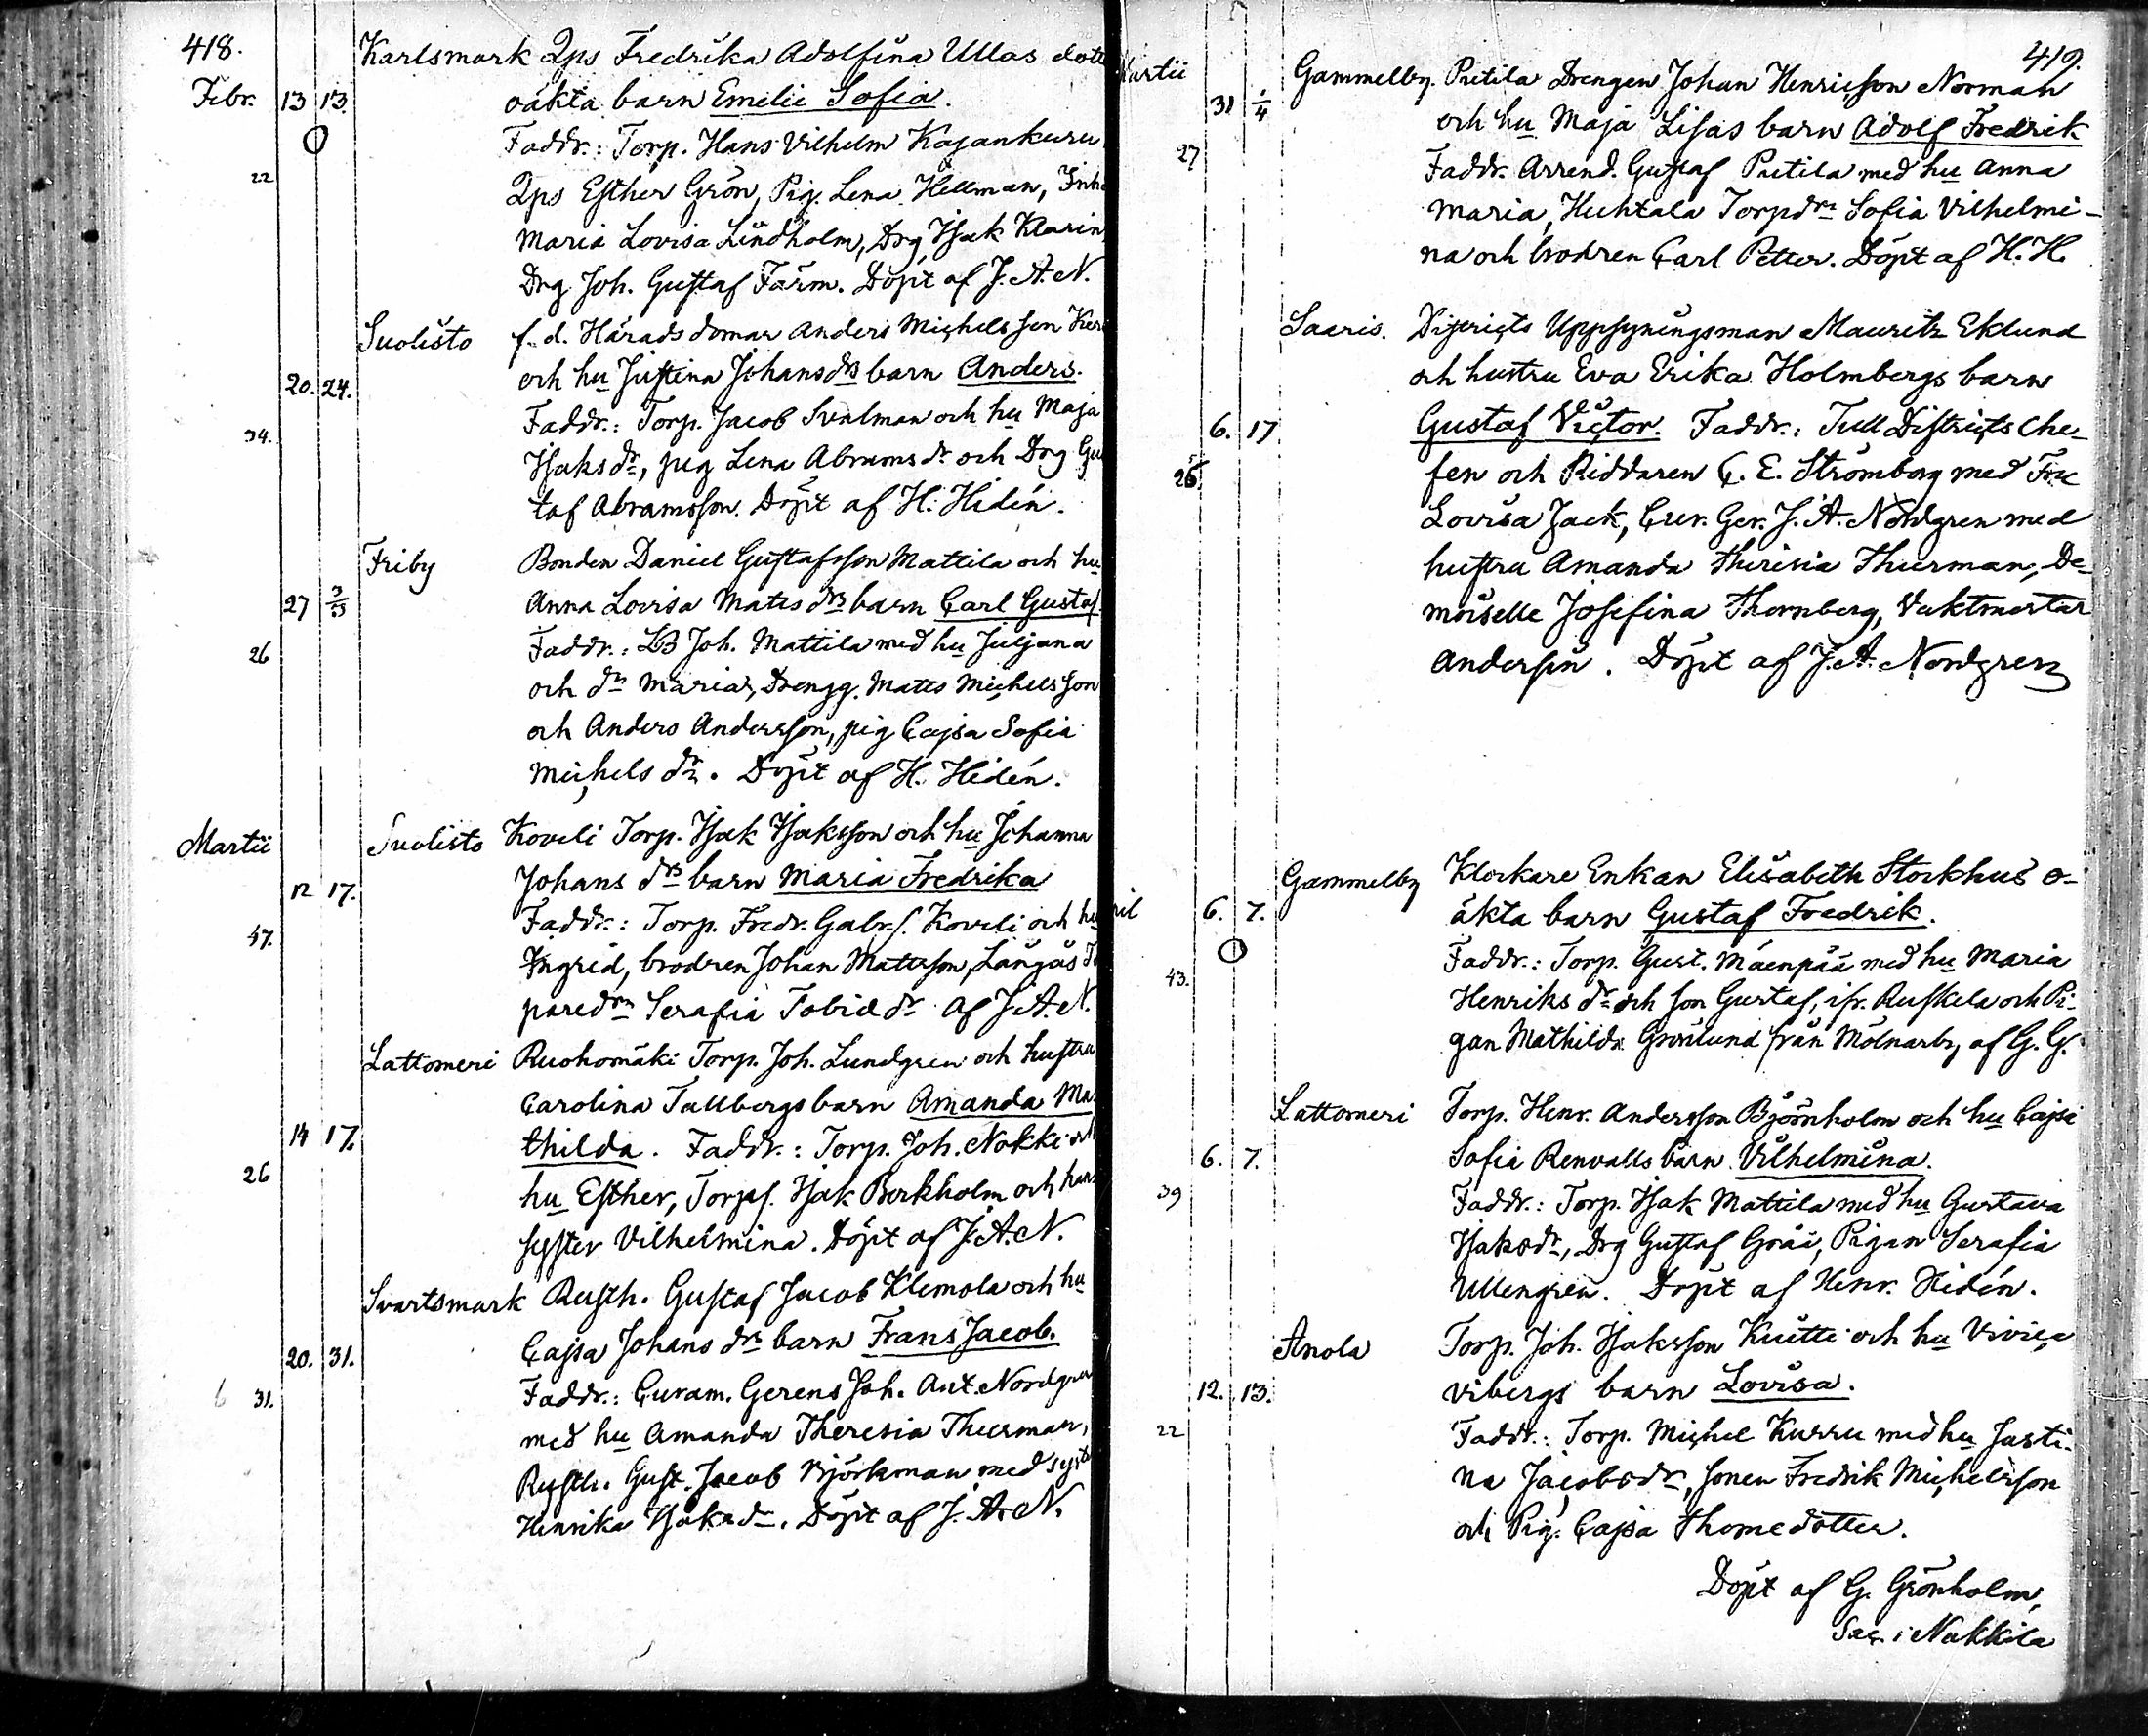 418.
Karlsmark Qps Fredrika Adolfina Ullas dott
Febr. 13 13 oäkta barn Emelie Sofia.
Faddr.: Torp. Hans Vilhelm Kajankuru
22 Qps Esther Grön, Pig. Lena Hellman, Inh
Maria Lovisa Lindholm, Drg Isak Klarin
Drg Joh. Gustaf Färm. Döpt af J. A. N.
Suolisto f. d. Härads domar Anders Michelsson
20. 24. och hu Justina Johansdrs barn Anders.
Faddr.: Torp. Jacob Svalman och hu Maja
34. Isaks dr, pig Lena Abrams dr och Drg Gus
taf Abramsson. Döpt af H. Hidén.
Friby Bonden Daniel Gustafsson Mattila och hu
27 3/ Anna Lovisa Mats drs barn Carl Gustaf
Faddr.: LB Joh. Mattila med hu Juljana
26 och dr Maria, Drengg. Matts Michelsson
och Anders Andersson, pig Cajsa Sofia
Michels dr. Döpt af H. Hidén.
Martii Suolisto Koveli Torp. Isak Isaksson och hu Johanna
12 17. Johans drs barn Maria Fredrika
Faddr.: Torp. Fredr. Gabr.s. Koveli och hu
47. Ingrid, brodren Johan Mattsson, Långås To
paredr Serafia Tobiedr af J. A. N.
Lattomeri Ruohomäki Torp. Joh. Lundgren och hustru
Carolina Tallbergs barn Amanda Ma
14 17. thilda. Faddr.: Torp. Joh. Nokki och
26 hu Esther, Torps. Isak Berkholm och hans
syster Vilhelmina. Döpt af J. A. N.
Svartsmark Rusth. Gustaf Jacob Klemola och hu
20. 31. Cajsa Johans drs barn Frans Jacob.
31. Faddr.: Curam. Gerens Joh. Ant. Nordgren
med hu Amanda Theresia Thurman,
Rusth. Gust. Jacob Björkman med syst
Henrika Isaksdr. Döpt af J. A. N.
419.
Martii Gammelby. Putila Drengen Johan Henricsson Norman
31 1/4 och hu Maja Lisas barn Adolf Fredrik
27 Faddr. Arrend. Gustaf Putila med hu Anna
Maria, Huhtala Torpdr Sofia Vilhelmi-
na och brodren Carl Petter. Döpt af H. H.
Saaris. Districts Uppsyningsman Mauritz Eklund
och hustru Eva Erika Holmbergs barn
6. 17 Gustaf Victor. Faddr.: Tull Districts che-
25 fen och Riddaren C. E. Strömborg med Fru
Lovisa Jack, Cur. Ger. J. A. Nordgren med
hustru Amanda Theresia Thurman, De-
moiselle Josefina Thornberg, Vaktmestar
Andersin. Döpt af J. A. Nordgren
Gammelby Klockare Enkan Elisabeth Stockhus o-
ril 6. 7. äkta barn Gustaf Fredrik.
Faddr.: Torp. Gust. Mäenpää med hu Maria
43. Henriks dr och son Gustaf, ifr. Ruskela och Pi-
gan Mathilda Grönlund från Mölnarby, af G. G.
Lattomeri Torp. Henr. Andersson Björnholm och hu Cajsa
6. 7. Sofia Renvalls barn Vilhelmina.
39 Faddr.: Torp. Isak Mattila med hu Gustava
Isaksdr, Drg Gustaf Gråå, Pigan Serafia
Ullengren. Döpt af Henr. Hidén.
Anola Torp. Joh. Isaksson Kuitti och hu Vivica
12. 13. Vibergs barn Lovisa.
22 Faddr.: Torp. Michel Kurru med hu Justi-
na Jacobsdr, sonen Fredrik Michelsson
och Pig. Cajsa Thomedotter.
Döpt af G. Grönholm,
Sac. i Nakkila